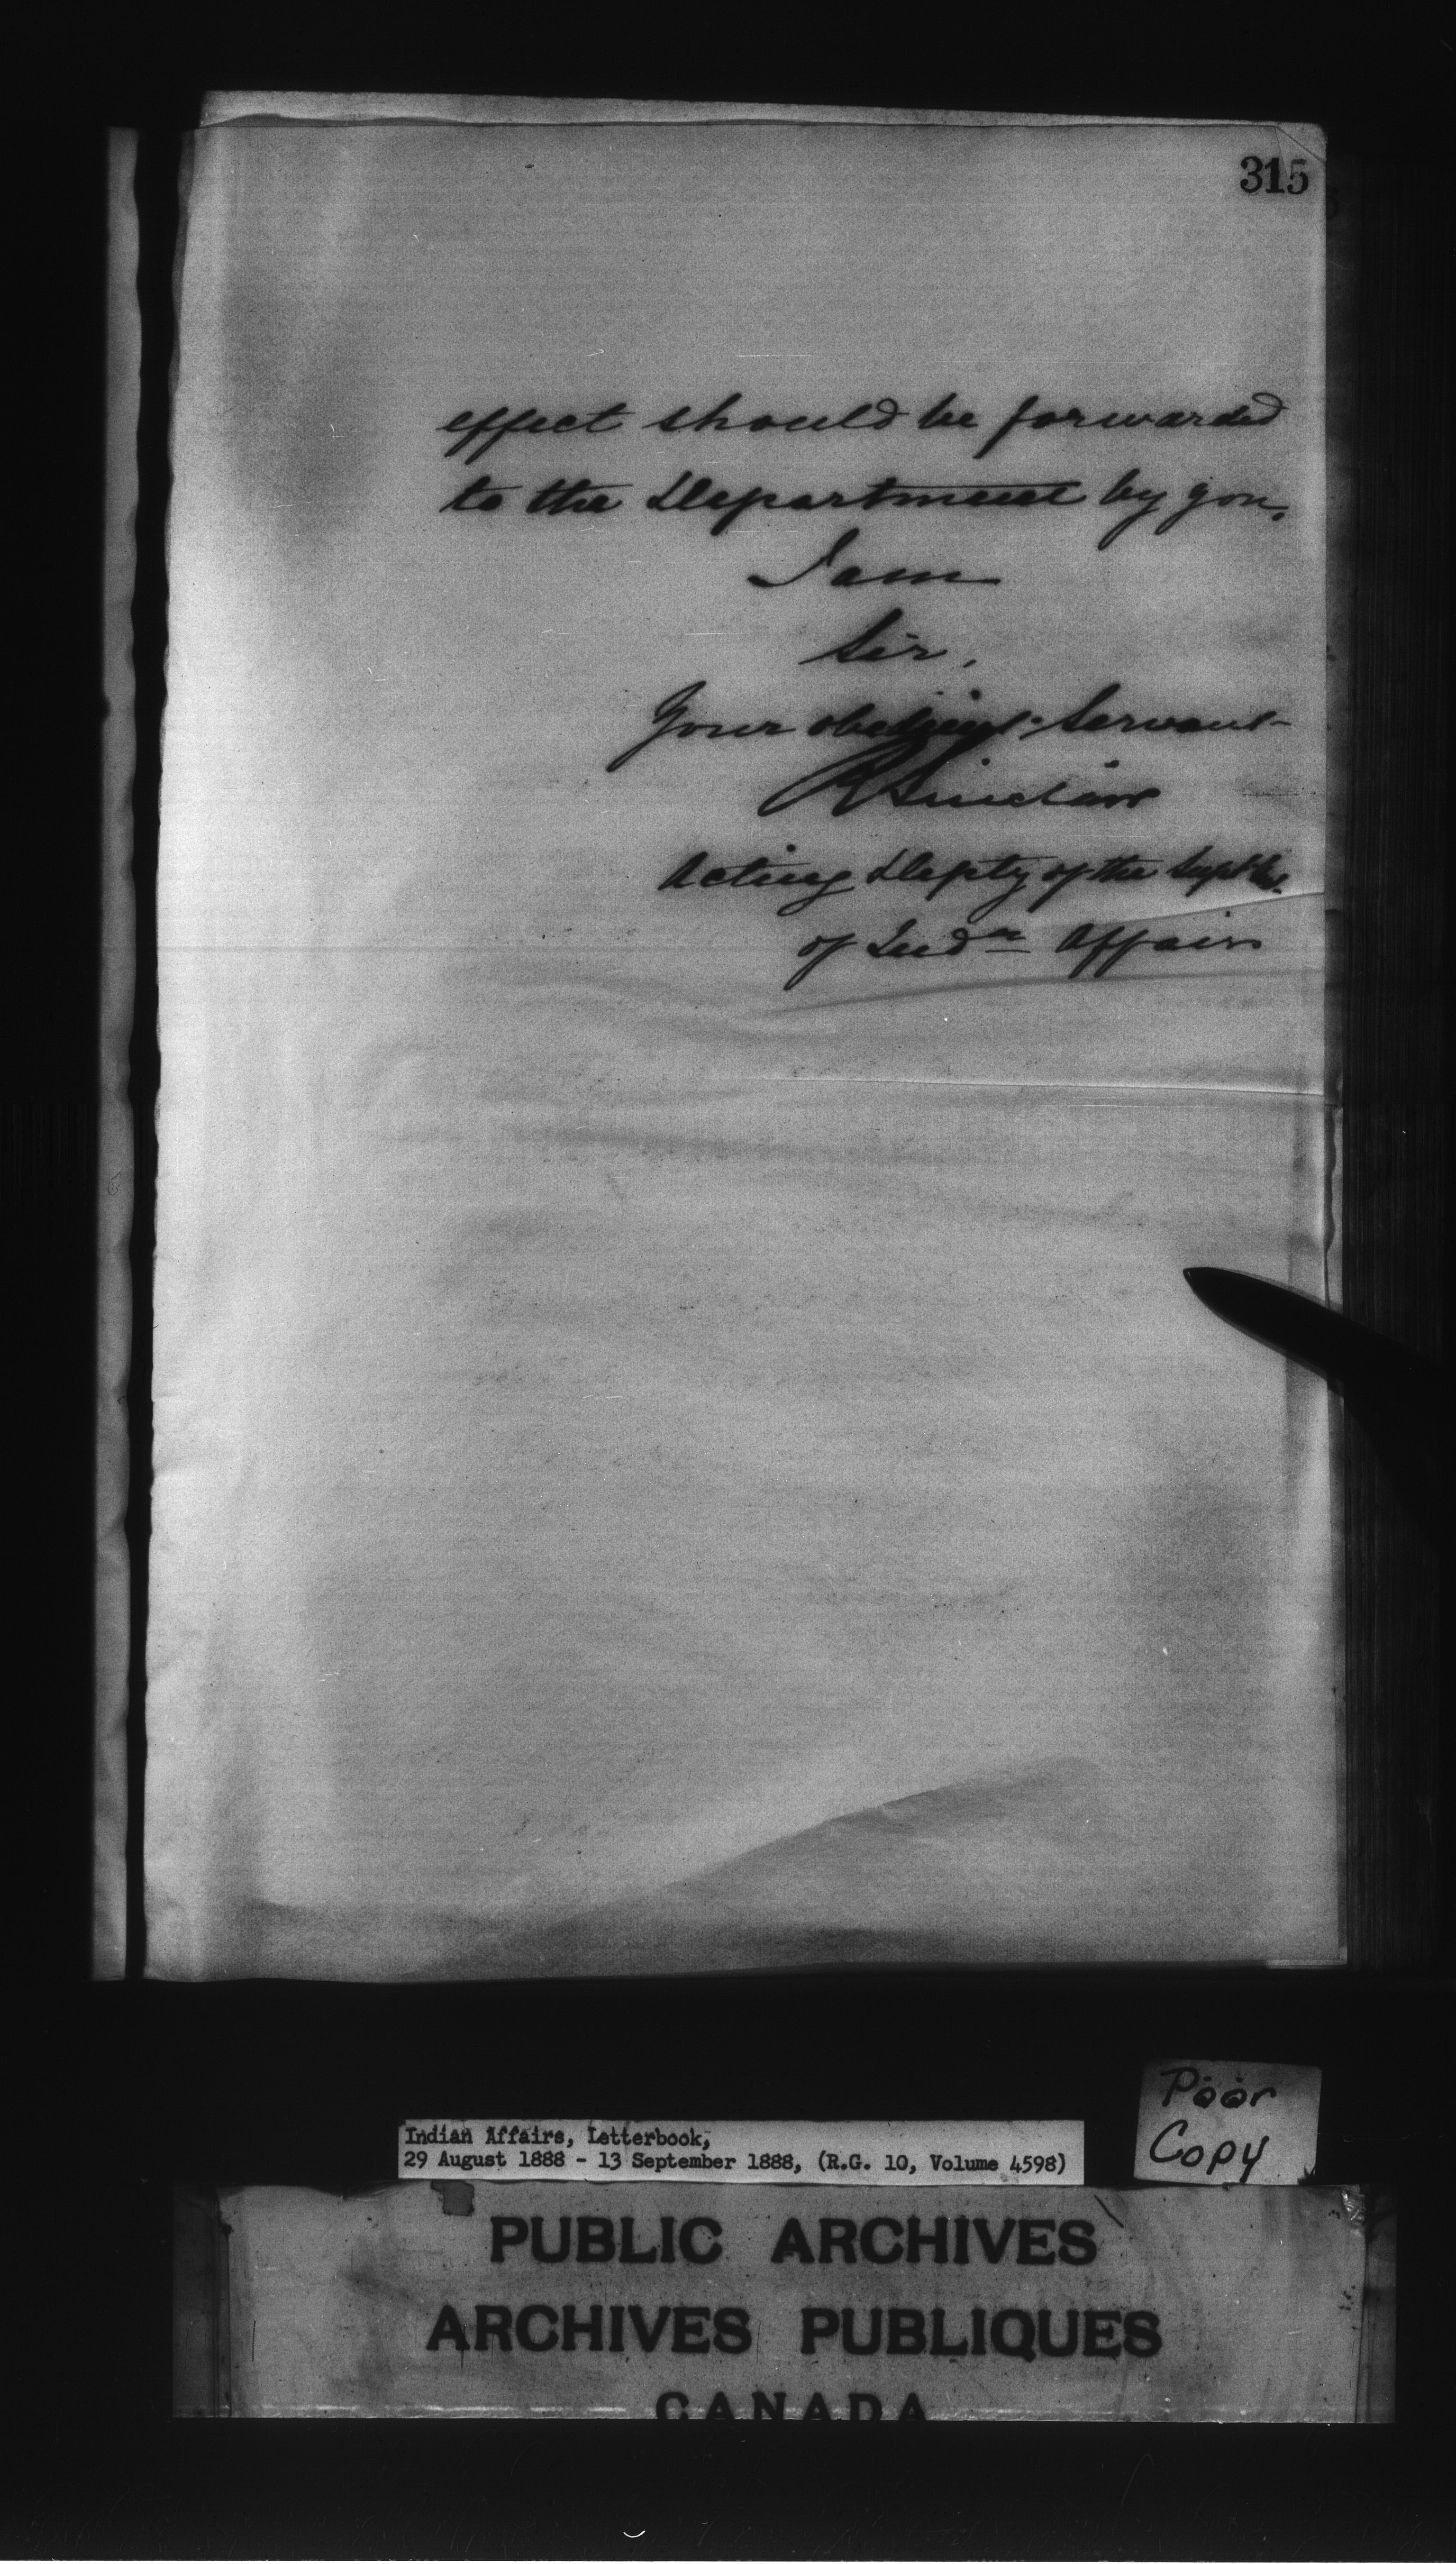 315
effect should be forwarded
to the Department by you.
I am
Sir,
Your obedient Servant
R Sinclair
Acting Depty of the Supt Gl.
of Ind<sup>n</sup> Affairs
Poor
Copy
Indian Affairs, Letterbook,
29 August 1888 - 13 September 1888, (R.G. 10, Volume 4598)
PUBLIC ARCHIVES
ARCHIVES PUBLIQUES
CANADA